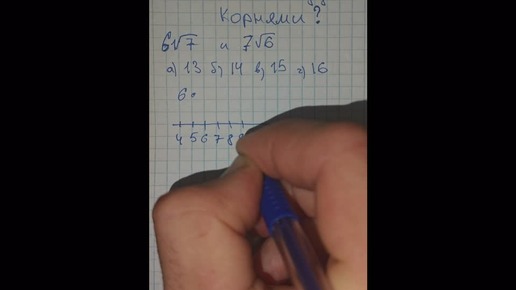 Корнями?
6√7 и 7√6
а) 13 б) 14 в) 15 г) 16
6·
4 5 6 7 8